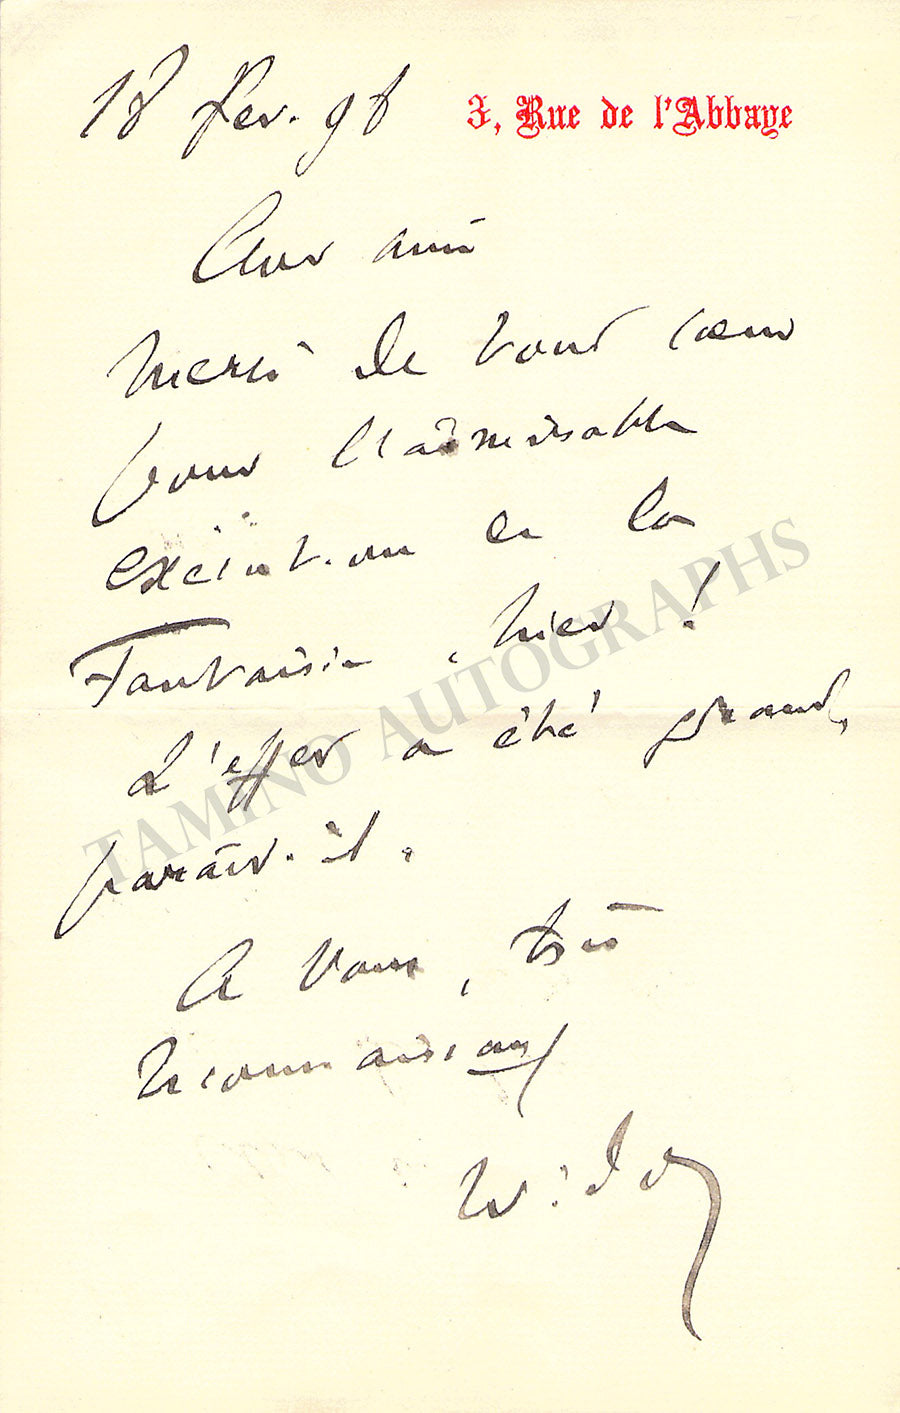 18 fev. 98 3, Rue de l'Abbaye
Cher ami
Merci de tout cœur
pour l'admirable
exécution de la
Fantaisie, hier !
L'effet a été grand,
paraît-il.
A vous, très
reconnaissant
Widor
TAMINO AUTOGRAPHS